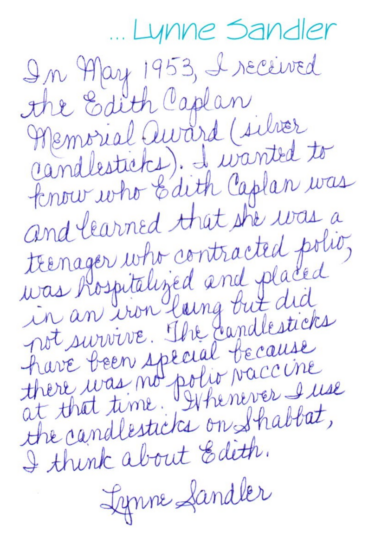 ... Lynne Sandler
In May 1953, I received
the Edith Caplan
Memorial Award (silver
candlesticks). I wanted to
know who Edith Caplan was
and learned that she was a
teenager who contracted polio,
was hospitalized and placed
in an iron lung but did
not survive. The candlesticks
have been special because
there was no polio vaccine
at that time. Whenever I use
the candlesticks on Shabbat,
I think about Edith.
Lynne Sandler